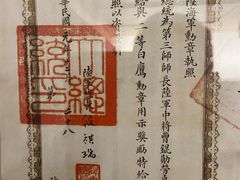 陸海軍勳章執照
總統為第三師師長陸軍中將曹錕勳勞
給與一等白鷹勳章用示獎勵特給
照以資
陸軍總長段祺瑞
華民國元年